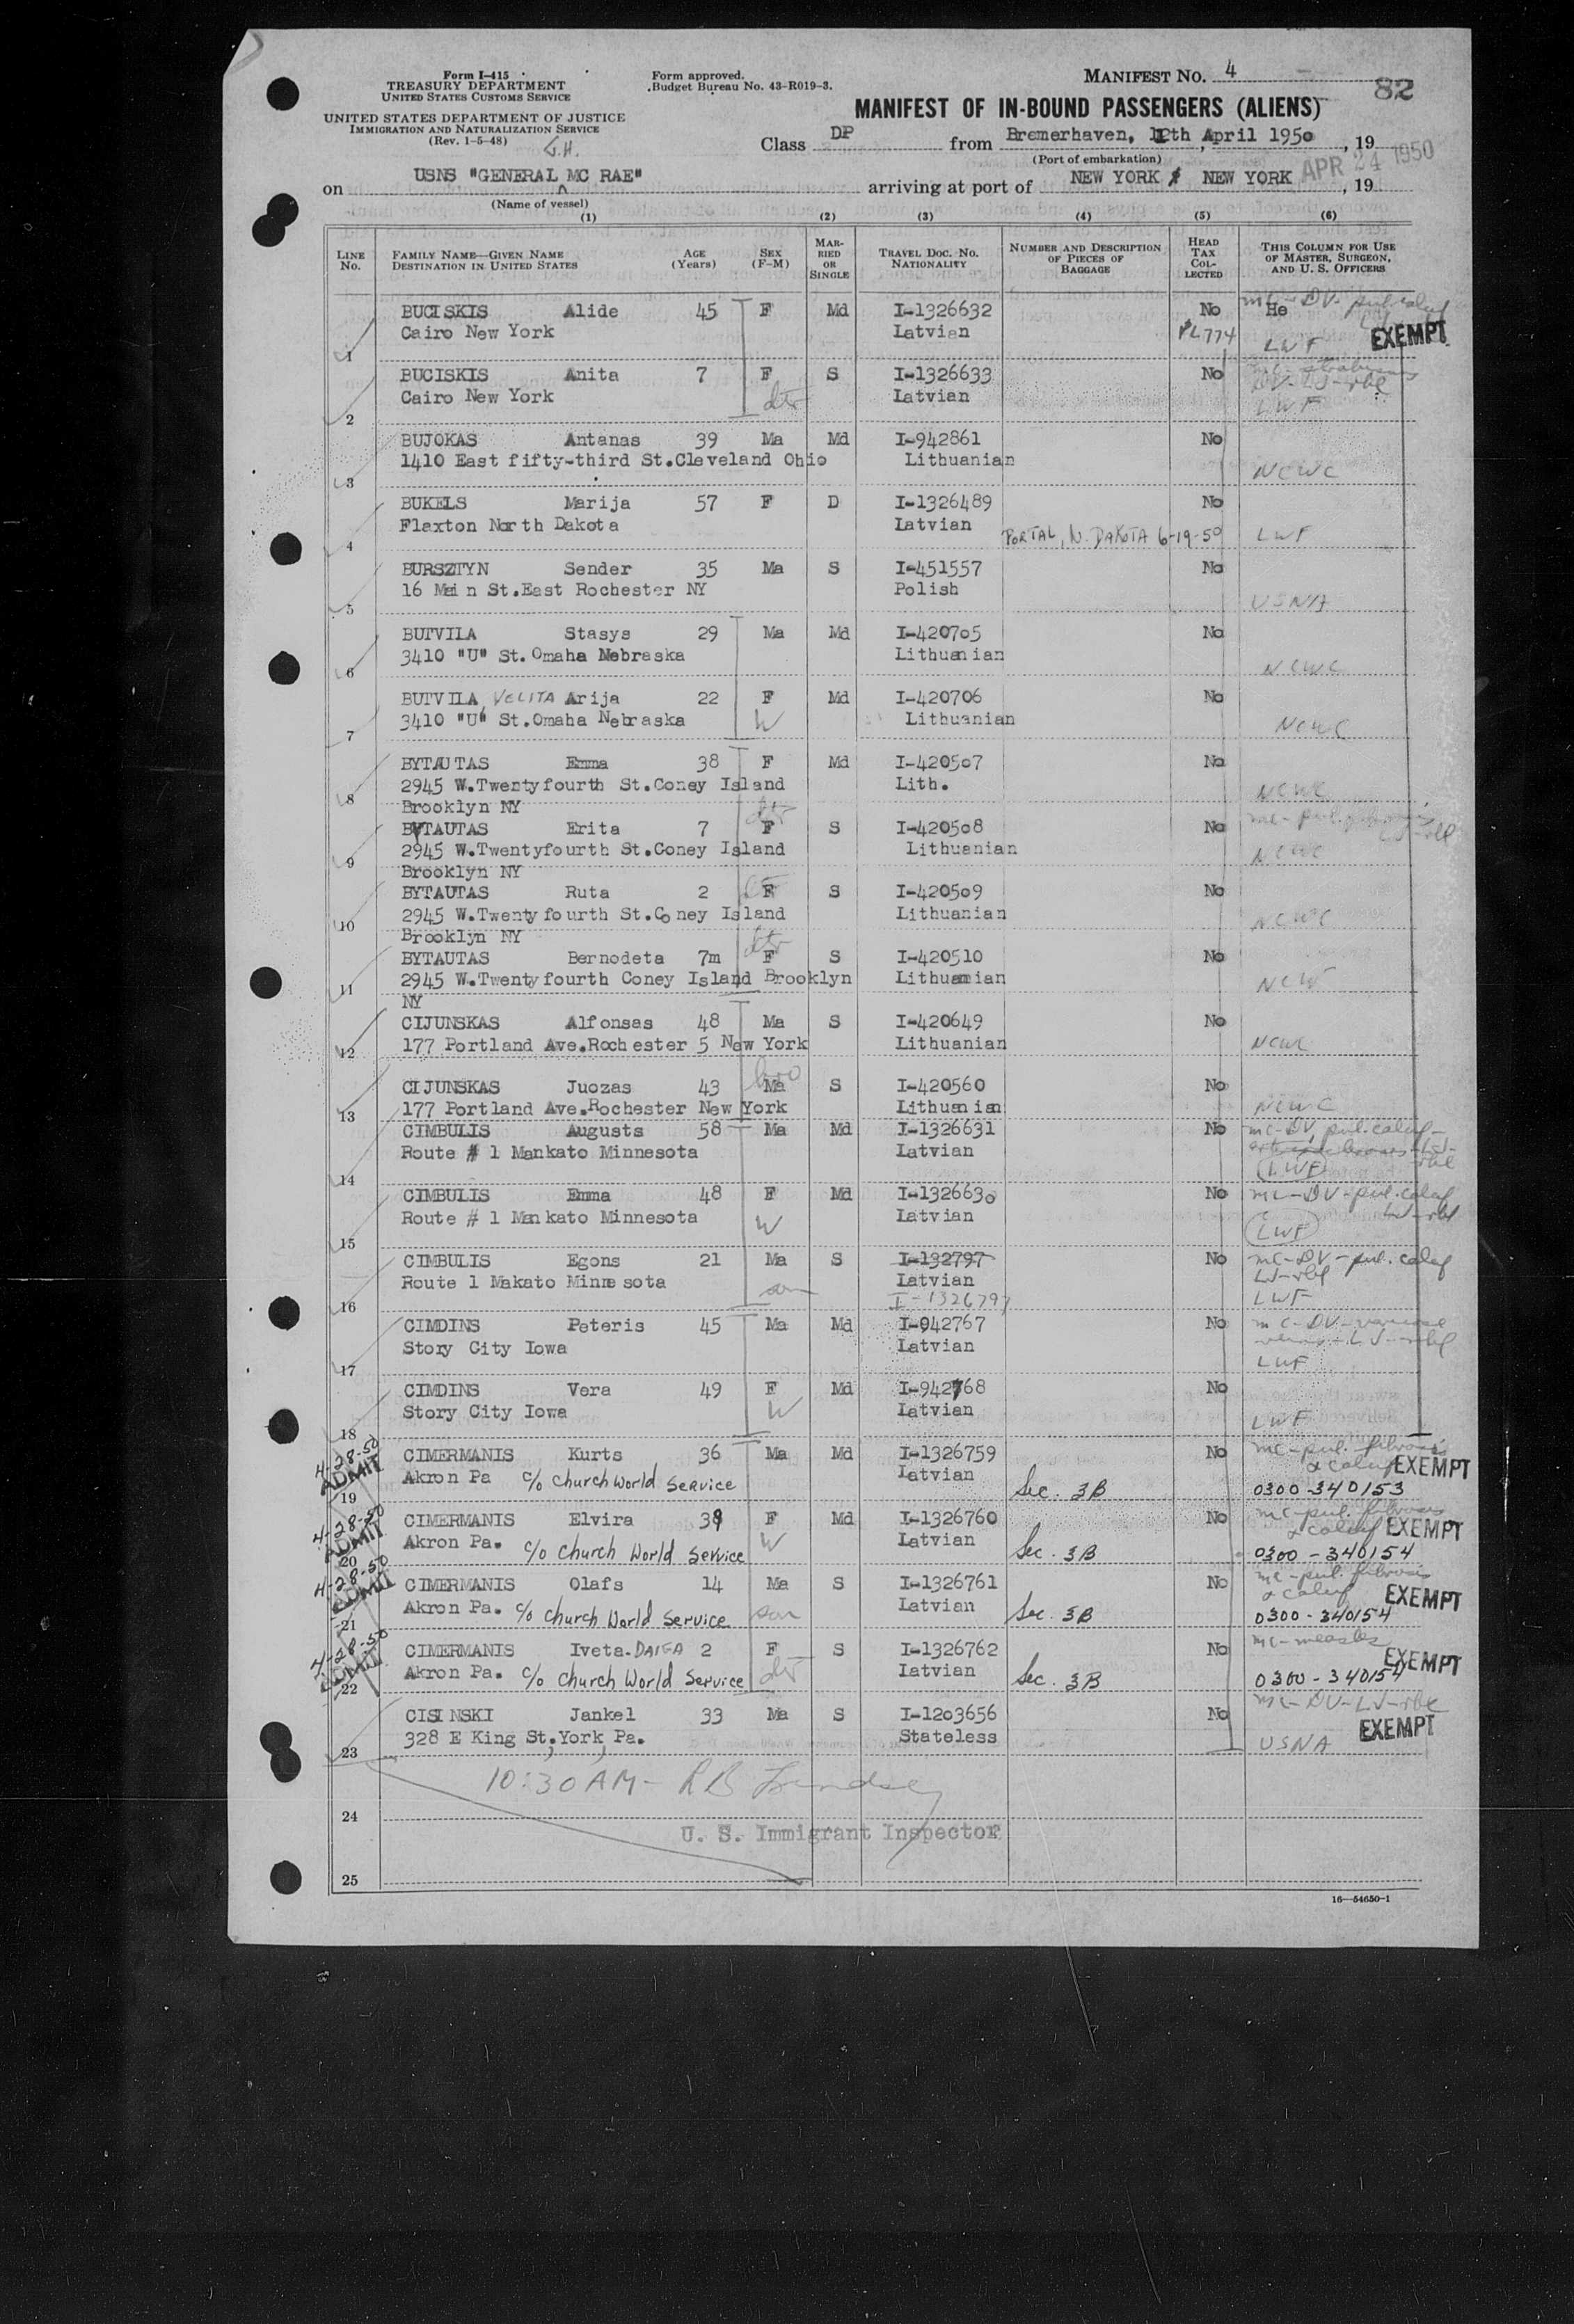 Form I-415
TREASURY DEPARTMENT
UNITED STATES CUSTOMS SERVICE
UNITED STATES DEPARTMENT OF JUSTICE
IMMIGRATION AND NATURALIZATION SERVICE
(Rev. 1-5-48)
Form approved.
Budget Bureau No. 43-R019-3.
MANIFEST No. 4
82
MANIFEST OF IN-BOUND PASSENGERS (ALIENS)
Class DP from Bremerhaven, 12th April 1950, 19
(Port of embarkation)
APR 24 1950
on USNS "GENERAL MC RAE" arriving at port of NEW YORK NEW YORK, 19
(Name of vessel)
(1) (2) (3) (4) (5) (6)
LINE No. FAMILY NAME—GIVEN NAME DESTINATION IN UNITED STATES AGE (Years) SEX (F-M) MARRIED OR SINGLE TRAVEL DOC. NO. NATIONALITY NUMBER AND DESCRIPTION OF PIECES OF BAGGAGE HEAD TAX COLLECTED THIS COLUMN FOR USE OF MASTER, SURGEON, AND U. S. OFFICERS
BUCISKIS Alide 45 F Md I-1326632 No He
Cairo New York Latvian PL774 LWF EXEMPT
1
BUCISKIS Anita 7 F S I-1326633 No
Cairo New York dtr Latvian LWF
2
BUJOKAS Antanas 39 Ma Md I-942861 No
1410 East fifty-third St.Cleveland Ohio Lithuanian NCWC
3
BUKELS Marija 57 F D I-1326489 No
Flaxton North Dakota Latvian PORTAL, N. DAKOTA 6-19-50 LWF
4
BURSZTYN Sender 35 Ma S I-451557 No
16 Main St.East Rochester NY Polish USNA
5
BUTVILA Stasys 29 Ma Md I-420705 No
3410 "U" St.Omaha Nebraska Lithuanian NCWC
6
BUTVILA, VELITA Arija 22 F Md I-420706 No
3410 "U" St.Omaha Nebraska W Lithuanian NCWC
7
BYTAUTAS Emma 38 F Md I-420507 No
2945 W.Twentyfourth St.Coney Island Lith. NCWC
8
Brooklyn NY dtr
BYTAUTAS Erita 7 F S I-420508 No
2945 W.Twentyfourth St.Coney Island Lithuanian NCWC
9
Brooklyn NY
BYTAUTAS Ruta 2 F S I-420509 No
2945 W.Twentyfourth St.Coney Island Lithuanian NCWC
10
Brooklyn NY dtr
BYTAUTAS Bernodeta 7m F S I-420510 No
2945 W.Twentyfourth Coney Island Brooklyn Lithuanian NCW
11
NY
CIJUNSKAS Alfonsas 48 Ma S I-420649 No
177 Portland Ave.Rochester 5 New York Lithuanian NCWC
12
CIJUNSKAS Juozas 43 bro Ma S I-420560 No
177 Portland Ave.Rochester New York Lithuanian NCWC
13
CIMBULIS Augusts 58 Ma Md I-1326631 No
Route # 1 Mankato Minnesota Latvian LWF
14
CIMBULIS Emma 48 F Md I-1326630 No mc-DV-pul.calcif
Route # 1 Mankato Minnesota W Latvian LWF
15
CIMBULIS Egons 21 Ma S I-132797 No mc-DV-pul. calcif
Route 1 Makato Minnesota son Latvian
16 I-1326797 LWF
CIMDINS Peteris 45 Ma Md I-942767 No
Story City Iowa Latvian LWF
17
CIMDINS Vera 49 F Md I-942768 No
Story City Iowa W Latvian LWF
18
4-28-50 ADMIT
CIMERMANIS Kurts 36 Ma Md I-1326759 No mc-pul. fibrosis & calcif EXEMPT
Akron Pa c/o Church World Service Latvian Sec. 3B 0300-340153
19
4-28-50 ADMIT
CIMERMANIS Elvira 39 F Md I-1326760 No mc-pul. fibrosis & calcif EXEMPT
Akron Pa. c/o Church World Service W Latvian Sec. 3B 0300-340154
20
4-28-50 ADMIT
CIMERMANIS Olafs 14 Ma S I-1326761 No mc-pul. fibrosis & calcif EXEMPT
Akron Pa. c/o Church World Service son Latvian Sec. 3B 0300-340154
21
4-28-50 ADMIT
CIMERMANIS Iveta.DAIGA 2 F S I-1326762 No mc-measles EXEMPT
Akron Pa. c/o Church World Service dtr Latvian Sec. 3B 0300-340154
22
CISINSKI Jankel 33 Ma S I-1203656 No
328 E King St,York, Pa. Stateless USNA EXEMPT
23
10:30 AM- RB Lindsey
24
U. S. Immigrant Inspector
25
16—54650-1